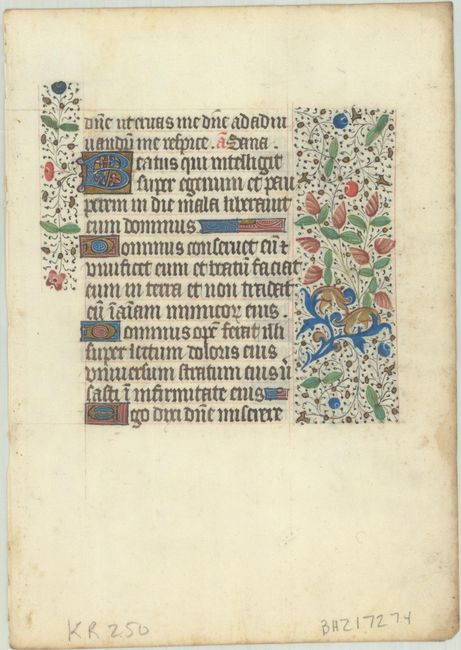 dñe ut eruas me dñe ad adiu
uandũ me respice. ã Sana.
Beatus qui intelligit
super egenum et pau
perem in die mala liberauit
eum dominus
Dominus conseruet eũ et
viuificet eum et beatũ faciat
eum in terra et non tradat
eũ ĩ aĩam inimicor eius.
Dominus opẽ ferat illi
super lectum doloris eius
vniuersum stratum eius ũ
sasti ĩ infirmitate eius
Ego dixi dñe miserere
KR 250
BHZ17274